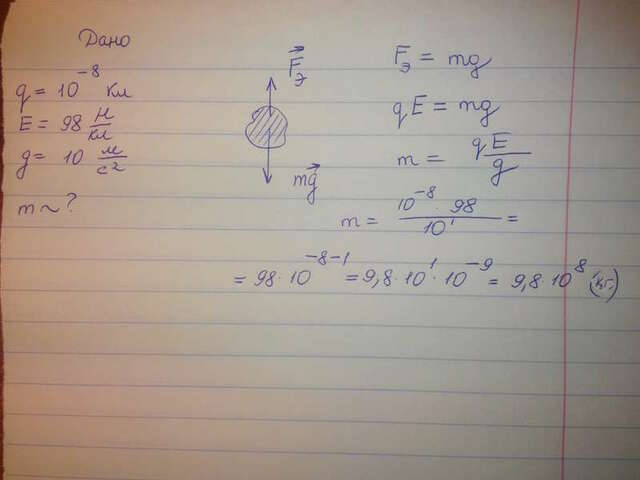 Дано
q = 10⁻⁸ Кл
E = 98 Н/Кл
g = 10 м/с²
m ~ ?
F⃗э
mg⃗
Fэ = mg
qE = mg
m = qE/g
m = 10⁻⁸ · 98 / 10¹ =
= 98 · 10⁻⁸⁻¹ = 9,8 · 10¹ · 10⁻⁹ = 9,8 · 10⁸ (кг.)